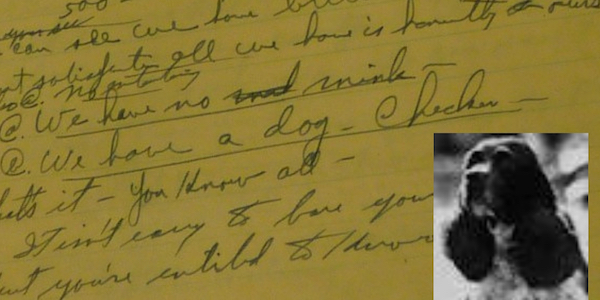 500 -
can see we have
not satisfied all we have is honestly ours
@. We have no mink -
@. We have a dog - Checker -
that's it - you know all -
It isn't easy to bare your
but you're entitled to know